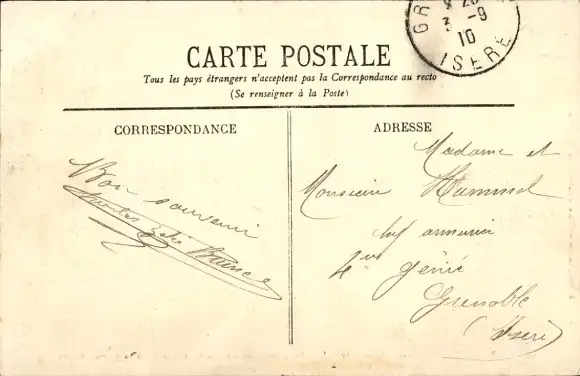 GR
20
3 -9
10
ISÈRE
CARTE POSTALE
Tous les pays étrangers n'acceptent pas la Correspondance au recto
(Se renseigner à la Poste)
CORRESPONDANCE
ADRESSE
Bon souvenir
Madame et
Monsieur
chef armurier
4e génie
Grenoble
(Isère)